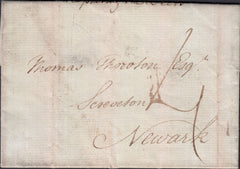 Thomas Thoroton Esqr
Screveton
Newark